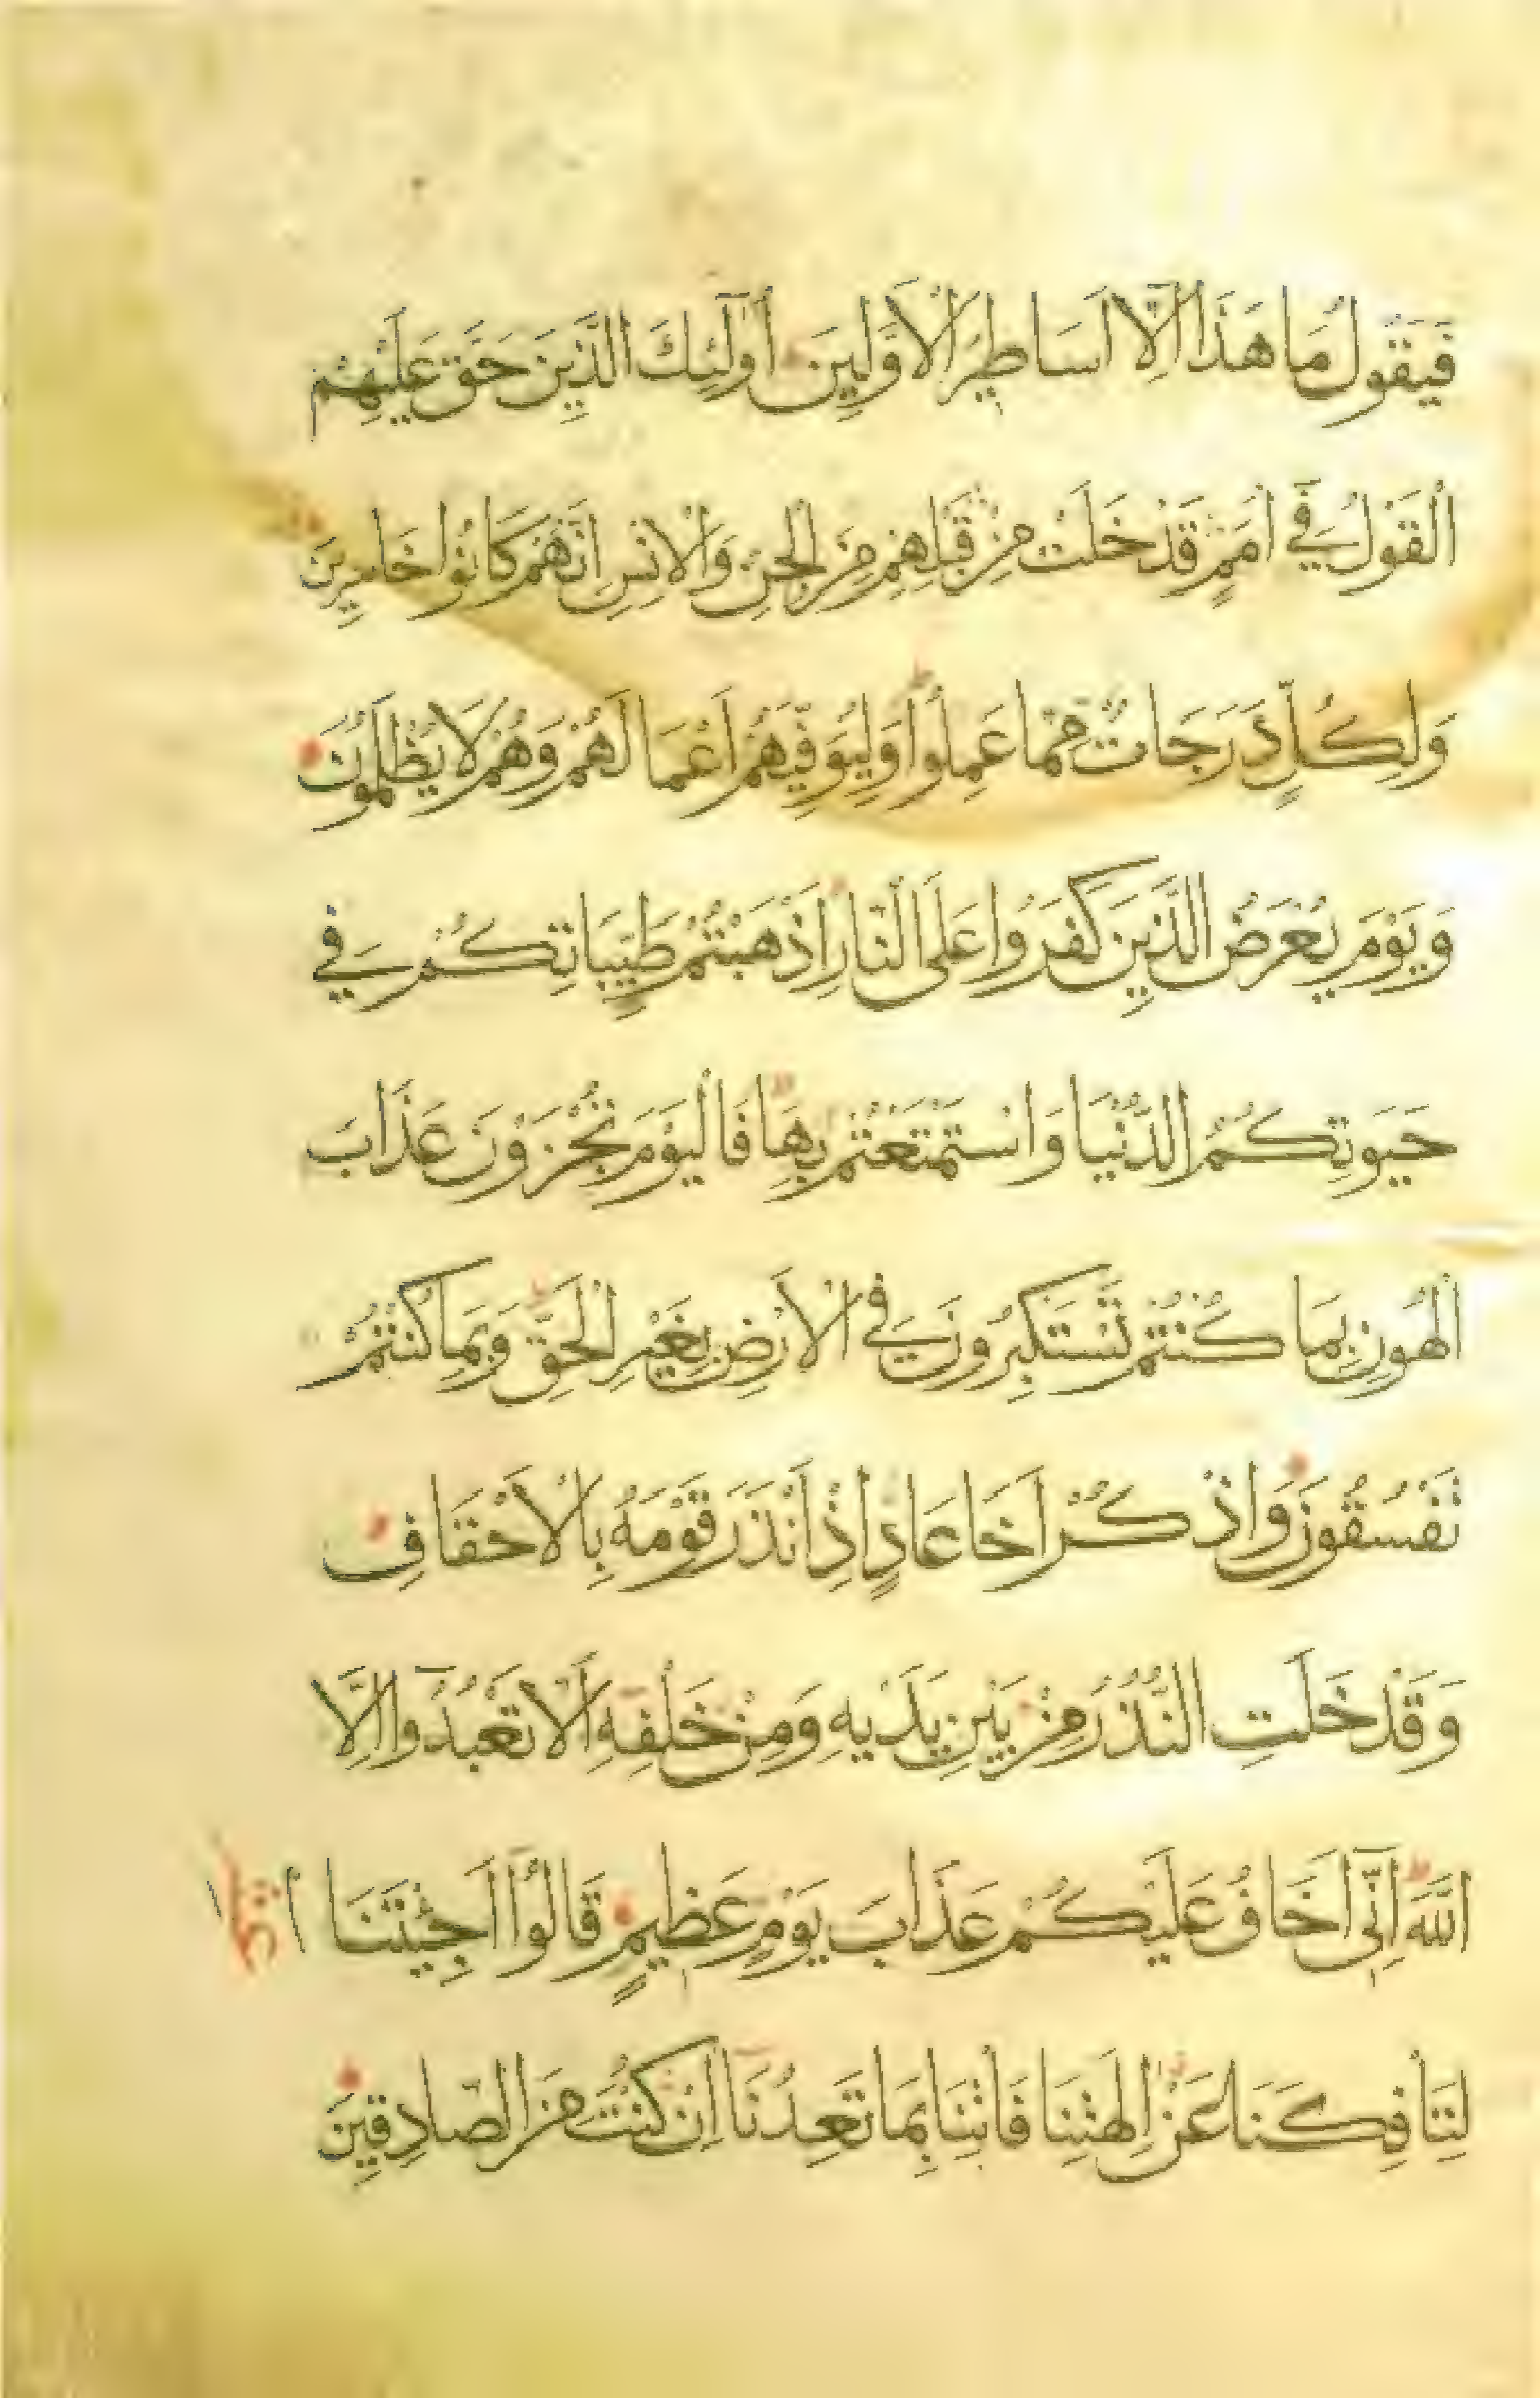 فَيَقُولُ مَا هَذَا اِلَّا اَسَاطِيرُ الْاَوَّلِينَ اُولَئِكَ الَّذِينَ حَقَّ عَلَيْهِمُ
الْقَوْلُ فِي اُمَمٍ قَدْ خَلَتْ مِنْ قَبْلِهِمْ مِنَ الْجِنِّ وَالْاِنْسِ اِنَّهُمْ كَانُوا خَاسِرِينَ
وَلِكُلٍّ دَرَجَاتٌ مِمَّا عَمِلُوا وَلِيُوَفِّيَهُمْ اَعْمَالَهُمْ وَهُمْ لَا يُظْلَمُونَ
وَيَوْمَ يُعْرَضُ الَّذِينَ كَفَرُوا عَلَى النَّارِ اَذْهَبْتُمْ طَيِّبَاتِكُمْ فِي
حَيَوتِكُمُ الدُّنْيَا وَاسْتَمْتَعْتُمْ بِهَا فَالْيَوْمَ تُجْزَوْنَ عَذَابَ
الْهُونِ بِمَا كُنْتُمْ تَسْتَكْبِرُونَ فِي الْاَرْضِ بِغَيْرِ الْحَقِّ وَبِمَا كُنْتُمْ
تَفْسُقُونَ وَاذْكُرْ اَخَا عَادٍ اِذْ اَنْذَرَ قَوْمَهُ بِالْاَحْقَافِ
وَقَدْ خَلَتِ النُّذُرُ مِنْ بَيْنِ يَدَيْهِ وَمِنْ خَلْفِهِ اَلَّا تَعْبُدُوا اِلَّا
اللَّهَ اِنِّي اَخَافُ عَلَيْكُمْ عَذَابَ يَوْمٍ عَظِيمٍ قَالُوا اَجِئْتَنَا
لِتَأْفِكَنَا عَنْ اٰلِهَتِنَا فَأْتِنَا بِمَا تَعِدُنَا اِنْ كُنْتَ مِنَ الصَّادِقِينَ